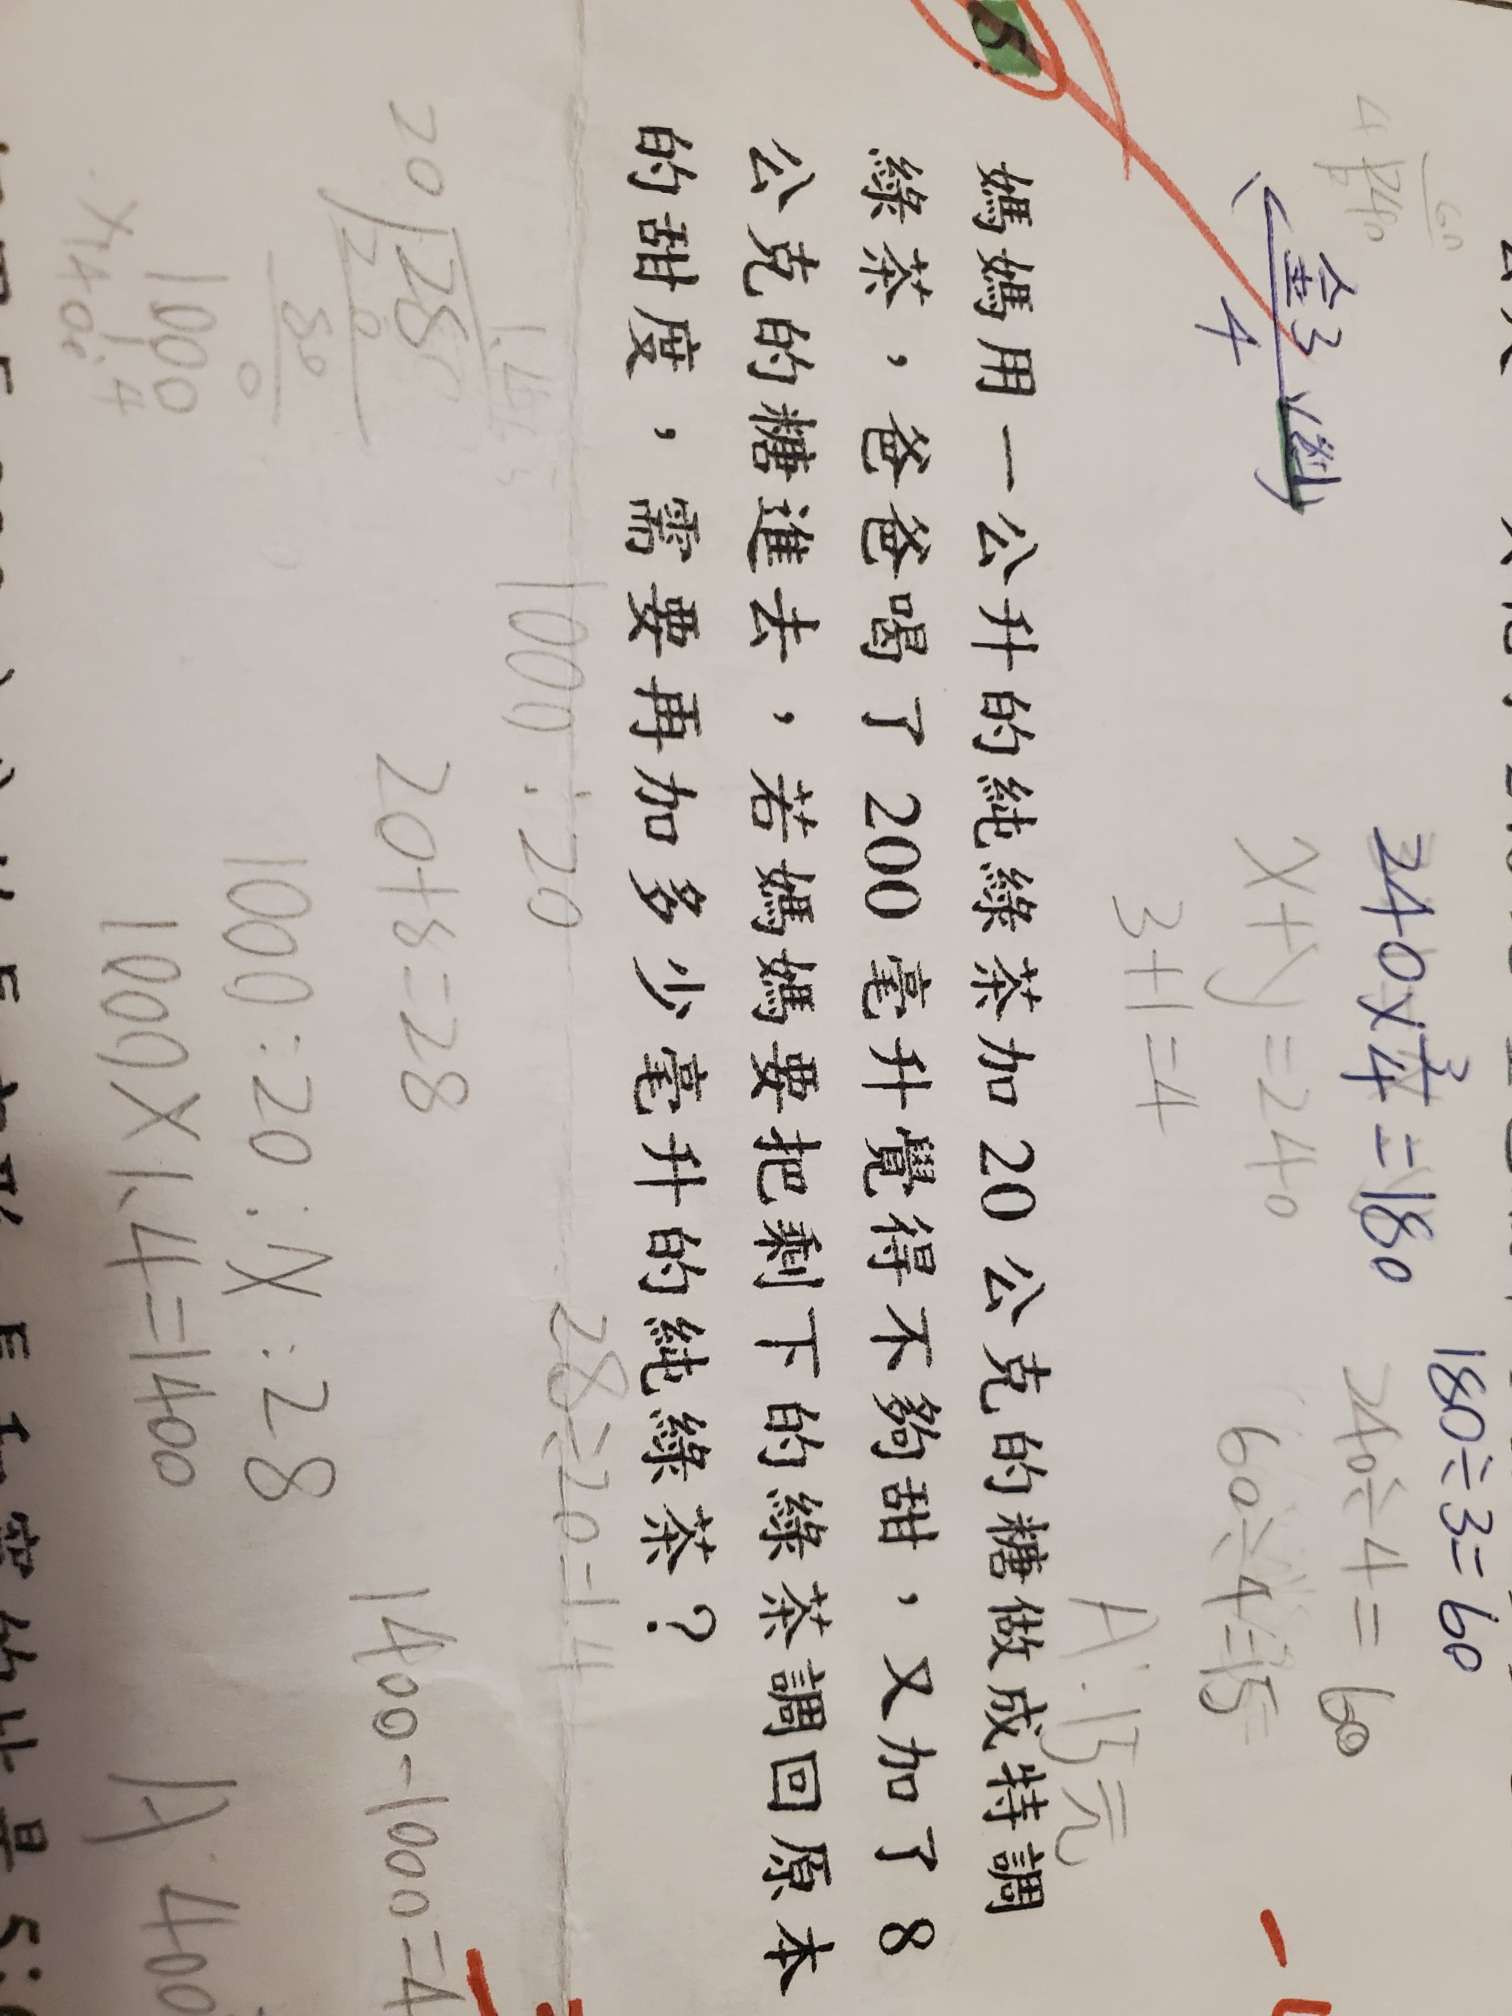 60
4 240
240×3/4=180
180÷3=60
x+y=240
240÷4=60
3+1=4
60÷4=15
A:15元
5.
媽媽用一公升的純綠茶加 20 公克的糖做成特調
綠茶，爸爸喝了 200 毫升覺得不夠甜，又加了 8
公克的糖進去，若媽媽要把剩下的綠茶調回原本
的甜度，需要再加多少毫升的純綠茶？
1000:20
28÷20=1.4
20+8=28
1400-1000=4
1000:20:x:28
1000×1.4=1400
A 400
1.4
20 280
20
80
0
1000